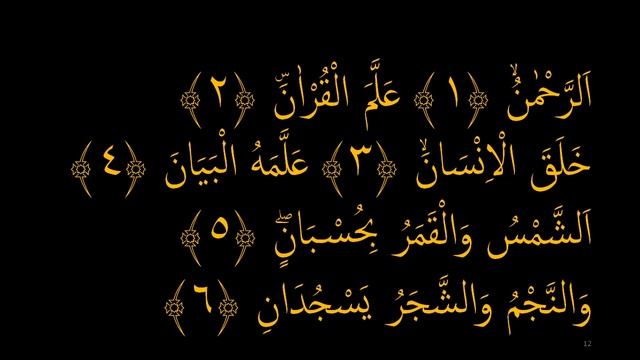 اَلرَّحْمٰنُۙ ﴿١﴾ عَلَّمَ الْقُرْاٰنَۜ ﴿٢﴾
خَلَقَ الْاِنْسَانَۙ ﴿٣﴾ عَلَّمَهُ الْبَيَانَ ﴿٤﴾
اَلشَّمْسُ وَالْقَمَرُ بِحُسْبَانٍۖ ﴿٥﴾
وَالنَّجْمُ وَالشَّجَرُ يَسْجُدَانِ ﴿٦﴾
12